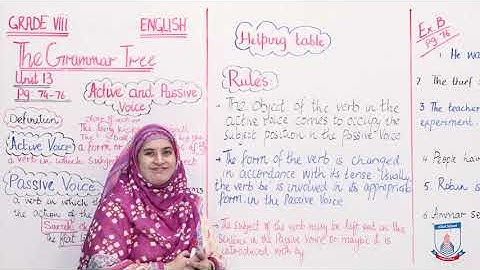 GRADE VIII
ENGLISH
The Grammar Tree
Unit 13
Pg: 74-76
Active and Passive
Voice
Definition
Active Voice
a verb in which subject
Passive Voice
a verb in which the
the action of the
Helping table
Rules
The object of the verb in the
active voice comes to occupy the
subject position in the Passive Voice
The form of the verb is changed
in accordance with its tense. Usually
the verb be is involved in its appropriate
form in the Passive Voice
The subject of the verb may be left out in the
sentence in the Passive Voice or maybe it is
introduced with by
Ex B
Pg: 76
1. He wa
2 The thief
3 The teacher
experiment.
4 People hav
5. Robin is
6. Ammar se